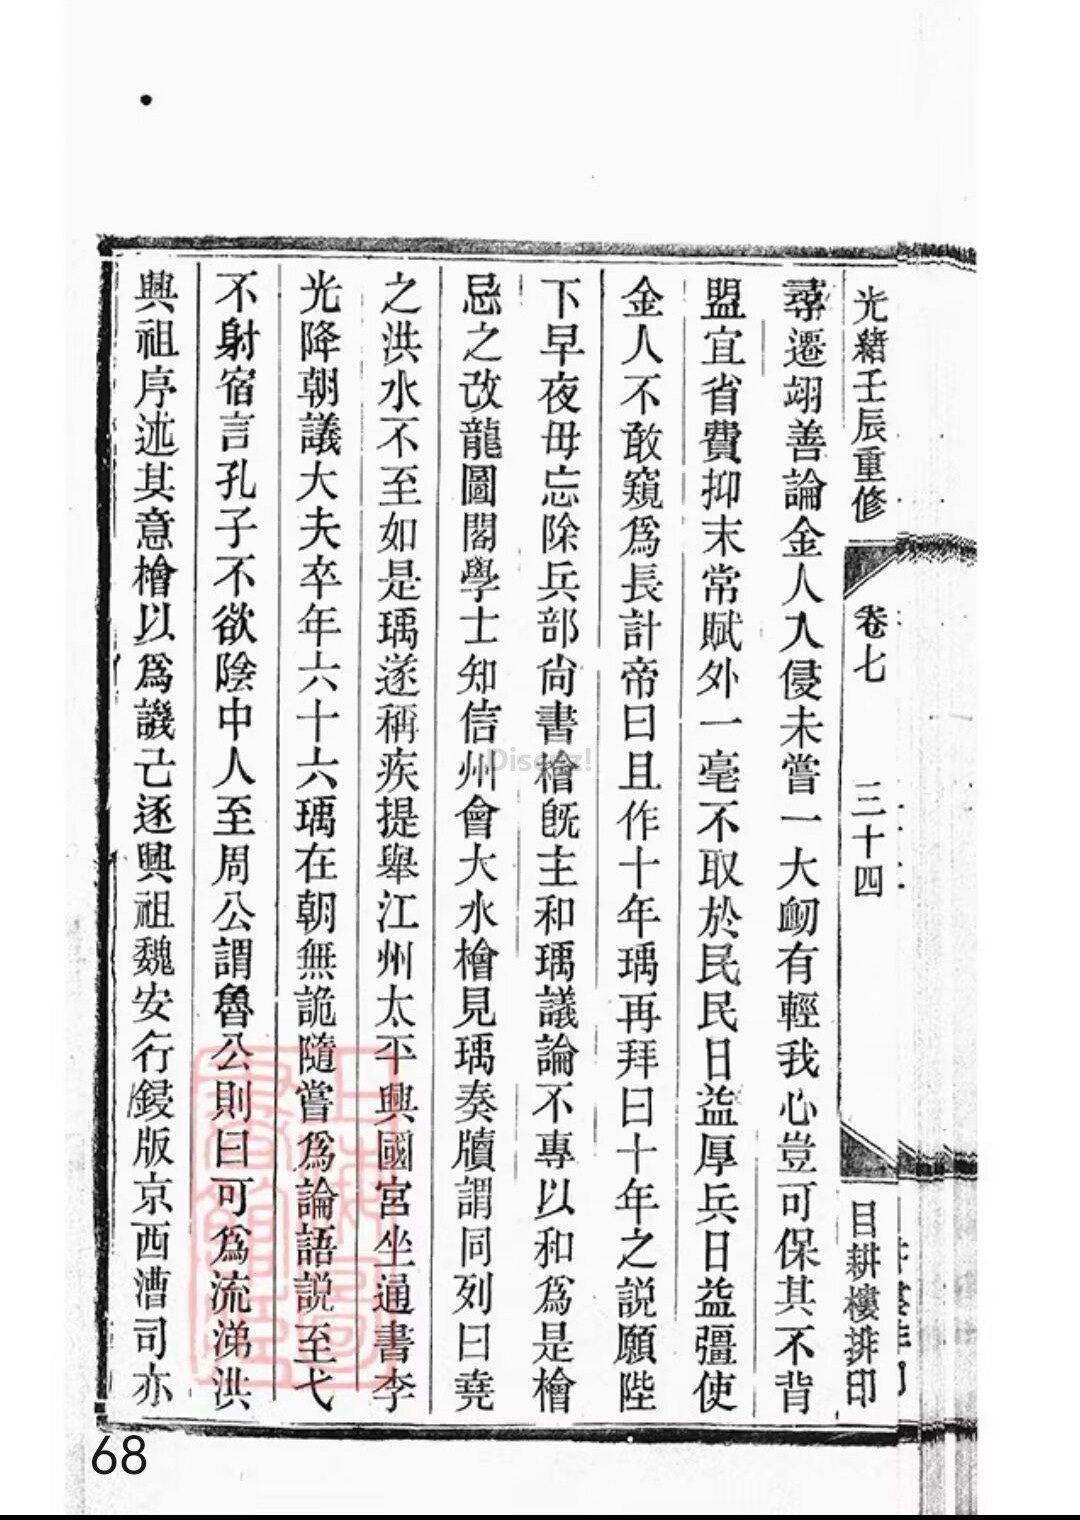 光緖壬辰重修 卷七 三十四 目耕樓排印
尋遷翊善論金人入侵未嘗一大衂有輕我心豈可保其不背
盟宜省費抑末常賦外一毫不取於民民日益厚兵日益彊使
金人不敢窺爲長計帝曰且作十年瑀再拜曰十年之説願陛
下早夜毋忘除兵部尙書檜旣主和瑀議論不專以和爲是檜
忌之改龍圖閣學士知信州會大水檜見瑀奏牘謂同列曰堯
之洪水不至如是瑀遂稱疾提舉江州太平興國宮坐通書李
光降朝議大夫卒年六十六瑀在朝無詭隨嘗爲論語説至弋
不射宿言孔子不欲陰中人至周公謂魯公則曰可爲流涕洪
興祖序述其意檜以爲譏己逐興祖魏安行鋟版京西漕司亦
68
Discuz!